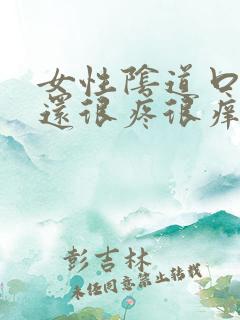 女性陰道口
還很疼很癢
彭吉林
未任同意禁止转载